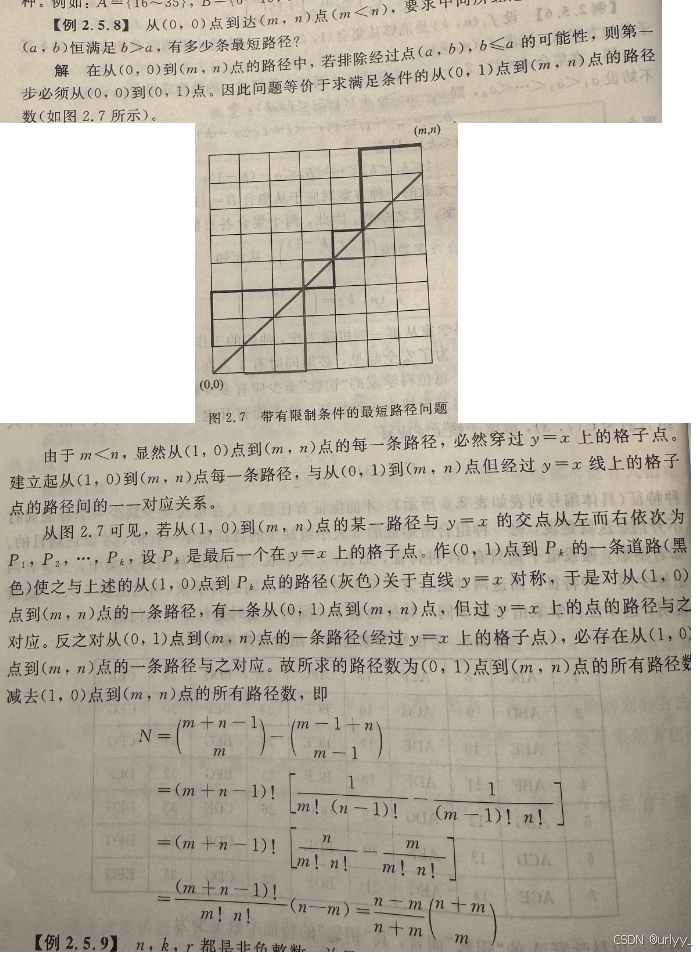 种。例如：A＝{16～35}，B＝
【例 2.5.8】 从(0, 0)点到达(m, n)点(m＜n)，要求中间所
(a, b)恒满足b＞a，有多少条最短路径？
解 在从(0, 0)到(m, n)点的路径中，若排除经过点(a, b), b≤a 的可能性，则第一
步必须从(0, 0)到(0, 1)点。因此问题等价于求满足条件的从(0, 1)点到(m, n)点的路径
数(如图 2.7 所示)。
(m,n)
(0,0)
图 2.7 带有限制条件的最短路径问题
由于 m＜n，显然从(1, 0)点到(m, n)点的每一条路径，必然穿过 y＝x 上的格子点。
建立起从(1, 0)到(m, n)点每一条路径，与从(0, 1)到(m, n)点但经过 y＝x 线上的格子
点的路径间的一一对应关系。
从图 2.7 可见，若从(1, 0)到(m, n)点的某一路径与 y＝x 的交点从左而右依次为
P₁, P₂, …, Pₖ, 设 Pₖ 是最后一个在 y＝x 上的格子点。作(0, 1)点到 Pₖ 的一条道路(黑
色)使之与上述的从(1, 0)点到 Pₖ 点的路径(灰色)关于直线 y＝x 对称，于是对从(1, 0)
点到(m, n)点的一条路径，有一条从(0, 1)点到(m, n)点，但过 y＝x 上的点的路径与之
对应。反之对从(0, 1)点到(m, n)点的一条路径(经过 y＝x 上的格子点)，必存在从(1, 0)
点到(m, n)点的一条路径与之对应。故所求的路径数为(0, 1)点到(m, n)点的所有路径数
减去(1, 0)点到(m, n)点的所有路径数，即
N＝(m＋n－1 m)－(m－1＋n m－1)
＝(m＋n－1)! [1/(m! (n－1)!) － 1/((m－1)! n!)]
＝(m＋n－1)! [n/(m! n!) － m/(m! n!)]
＝(m＋n－1)!/(m! n!) (n－m)＝(n－m)/(n＋m) (n＋m m)
【例 2.5.9】 n, k, r 都是非负整数，
CSDN @urlyy_